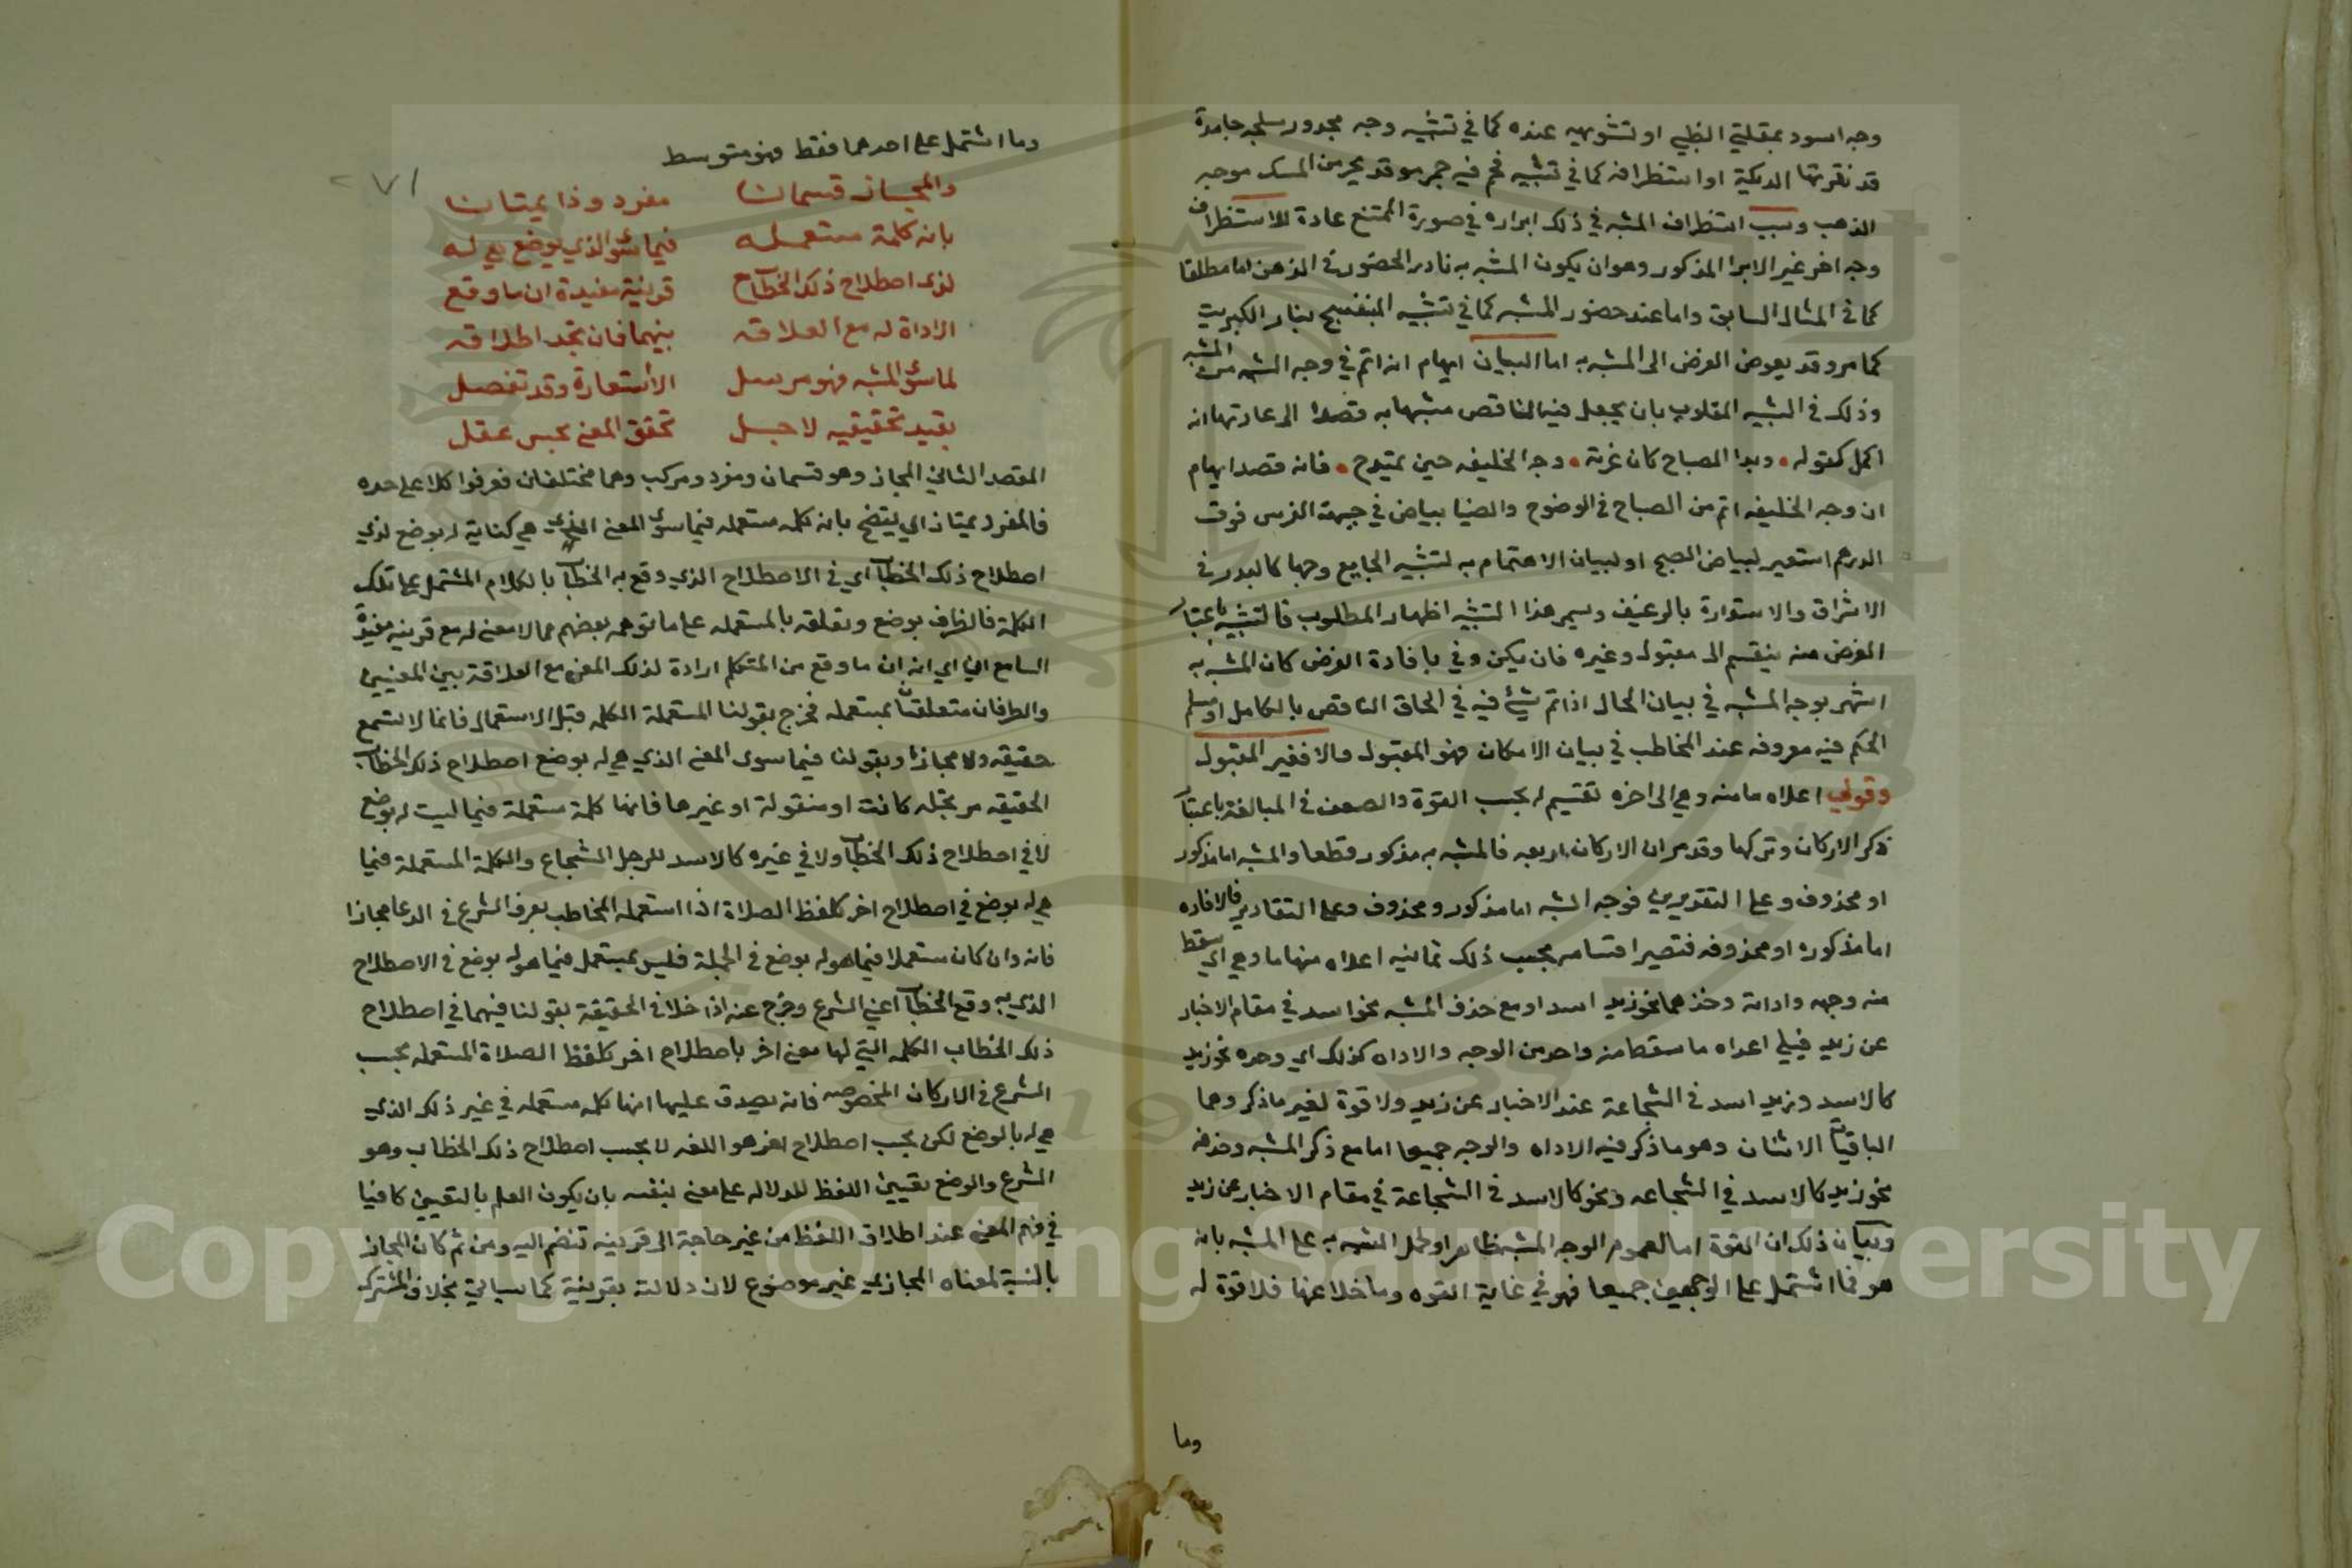 وجه اسود بمقلتي الظبي او تشويهه عنده كما في تشبيه وجه مجدور بسلحة جامدة
قد نقرتها الديكة او استظرافه كما في تشبيه فحم فيه جمر موقد ببحر من المسك موجه
الذهب وسبب استظراف المشبه في ذلك ابرازه في صورة الممتنع عادة للاستظراف
وجه اخر غير الابراز المذكور وهو ان يكون المشبه به نادر الحضور في الذهن اما مطلقا
كما في المثال السابق واما عند حضور المشبه كما في تشبيه البنفسج بنار الكبريت
كما مر وقد يعوض الغرض الى المشبه به اما البيان ايهام انه اتم في وجه الشبه من المشبه
وذلك في التشبيه المقلاب بان يجعل فيه الناقص مشبها به قصدا الى عادتها انه
اكمل كقوله • وبدا الصباح كان غرته • وجه الخليفه حين يمتدح • فانه قصد ايهام
ان وجه الخليفه اتم من الصباح في الوضوح والضيا بياض في جبهة الفرس فوق
الدرهم استعير لبياض الصبح او لبيان الاهتمام به لتشبيه الجايع وجها كالبدر في
الاشراق والاستدارة بالرغيف ويسمى هذا التشبيه اظهار المطلوب فالتشبيه باعتبار
الغرض منه ينقسم الى مقبول وغيره فان يكن وفي بافادة الغرض كان المشبه به
اشهر بوجه المشبه في بيان الحال اذا تم شيء فيه في الحاق الناقص بالكامل او مسلم
الحكم فيه معروفه عند المخاطب في بيان الامكان فهو المقبول والا فغير المقبول
وقولي اعلاه ما منه وهي الى اخره تقسيم له بحسب القوة والضعف في المبالغة باعتبار
ذكر الاركان وتركها وقد مر ان الاركان اربعه فالمشبه به مذكور قطعا والمشبه اما مذكور
او محذوف وعلى التقديرين فوجه الشبه اما مذكور ومحذوف وعلى التقادير فالاداه
اما مذكوره او محذوفه فتصير اقسامه بحسب ذلك ثمانيه اعلاه منها ما وهي اي سقط
منه وجهه واداته وحذفهما نحو زيد اسد او مع حذف المشبه نحو اسد في مقام الاخبار
عن زيد فيلي اعلاه ما سقط منه واحد من الوجه والاداه كذلك اي وحده نحو زيد
كالاسد وزيد اسد في الشجاعة عند الاخبار عن زيد ولا قوة لغير ما ذكر وهما
الباقيان الاثنان وهو ما ذكر فيه الاداه والوجه جميعا اما مع ذكر المشبه وحذفه
نحو زيد كالاسد في الشجاعه ونحو كالاسد في الشجاعة في مقام الاخبار عن زيد
وبيان ذلك ان القوة اما لعموم الوجه المشبه ظاهرا او لحمل المشبه به على المشبه بانه
هو فما اشتمل على الوجهين جميعا فهو في غاية القوه وما خلا عنها فلا قوة له
وما
وما اشتمل على احدهما فقط فهو متوسط
٢٧١
والمجاز قسمان مفرد وذا يمتان
بانه كلمة مستعمله فيما سوى الذي بوضع هي له
لذى اصطلاح ذلك الخطاب قرينة مفيدة ان ما وقع
الاداة له مع العلاقه بينهما فان تجد اطلاقه
لما سوى المشبه فهو مرسل الاستعارة وقد تفصل
بقيد تحقيقيه لاجل تحقق المعنى بحس عقل
المقصد الثاني المجاز وهو قسمان ومفرد ومركب وهما مختلفان فعرفوا كلا على حده
فالمفرد يمتاز اي يتضح بانه كلمه مستعمله فيما سوى المعنى الذي هي كناية له بوضع لذي
اصطلاح ذلك الخطاب اي في الاصطلاح الذي وقع به الخطاب بالكلام المشتمل على تلك
الكلمة فالظرف بوضع وتعلقه بالمستعمله على ما توهمه بعضهم مما لا معنى له مع قرينه مفيدة
السامع اي انه ان ما وقع من المتكلم ارادة لذلك المعنى مع العلاقة بين المعنيين
والظرفان متعلقان بمستعمله فخرج بقولنا المستعملة الكلمه قبل الاستعمال فانها لا تسمع
حقيقه ولا مجازا وبقولنا فيما سوى المعنى الذي هي له بوضع اصطلاح ذلك الخطاب
الحقيقه مرتجله كانت او منقولة او غيرها فانها كلمة مستعملة فيما ليست له بوضع
لا في اصطلاح ذلك الخطاب ولا في غيره كالاسد للرجل الشجاع والكلمة المستعملة فيما
هي له بوضع في اصطلاح اخر كلفظ الصلاة اذا استعمله المخاطب بعرف الشرع في الدعا مجازا
فانه وان كان مستعملا فيما هو له بوضع في الجملة فليس بمستعمل فيما هو له بوضع في الاصطلاح
الذي به وقع الخطاب اعني الشرع وخرج عنه اذا خلا في الحقيقة بقولنا فيهما في اصطلاح
ذلك الخطاب الكلمه التي لها معنى اخر باصطلاح اخر كلفظ الصلاة المستعمله بحسب
الشرع في الاركان المخصوصه فانه يصدق عليها انها كلمه مستعمله في غير ذلك الذي
هي له بالوضع لكن بحسب اصطلاح اخر هو اللغه لا بحسب اصطلاح ذلك الخطاب وهو
الشرع والوضع تعيين اللفظ للدلاله على معنى بنفسه بان يكون العلم بالتعيين كافيا
في فهم المعنى عند اطلاق اللفظ من غير حاجة الى قرينه تنضم اليه ومن ثم كان المجاز
بالنسبة لمعناه المجازي غير موضوع لان دلالته بقرينة كما سياتي بخلاف المشترك
Copyright © King Saud University